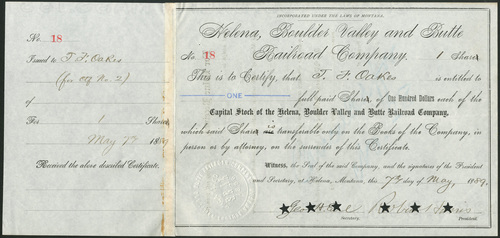 No. 18
Issued to T. F. Oakes
(for ctf No. 2)
of
For 1 Share
May 7th 1889
Received the above described Certificate.
INCORPORATED UNDER THE LAWS OF MONTANA.
Helena, Boulder Valley and Butte
Railroad Company.
No. 18
1 Share
This is to Certify, that T. F. Oakes is entitled to
ONE full-paid Share, of One Hundred Dollars each of the
Capital Stock of the Helena, Boulder Valley and Butte Railroad Company,
which said Share is transferable only on the Books of the Company, in
person or by attorney, on the surrender of this Certificate.
Witness, the Seal of the said Company, and the signatures of the President
and Secretary, at Helena, Montana, this 7th day of May, 1889.
Secretary.
President.